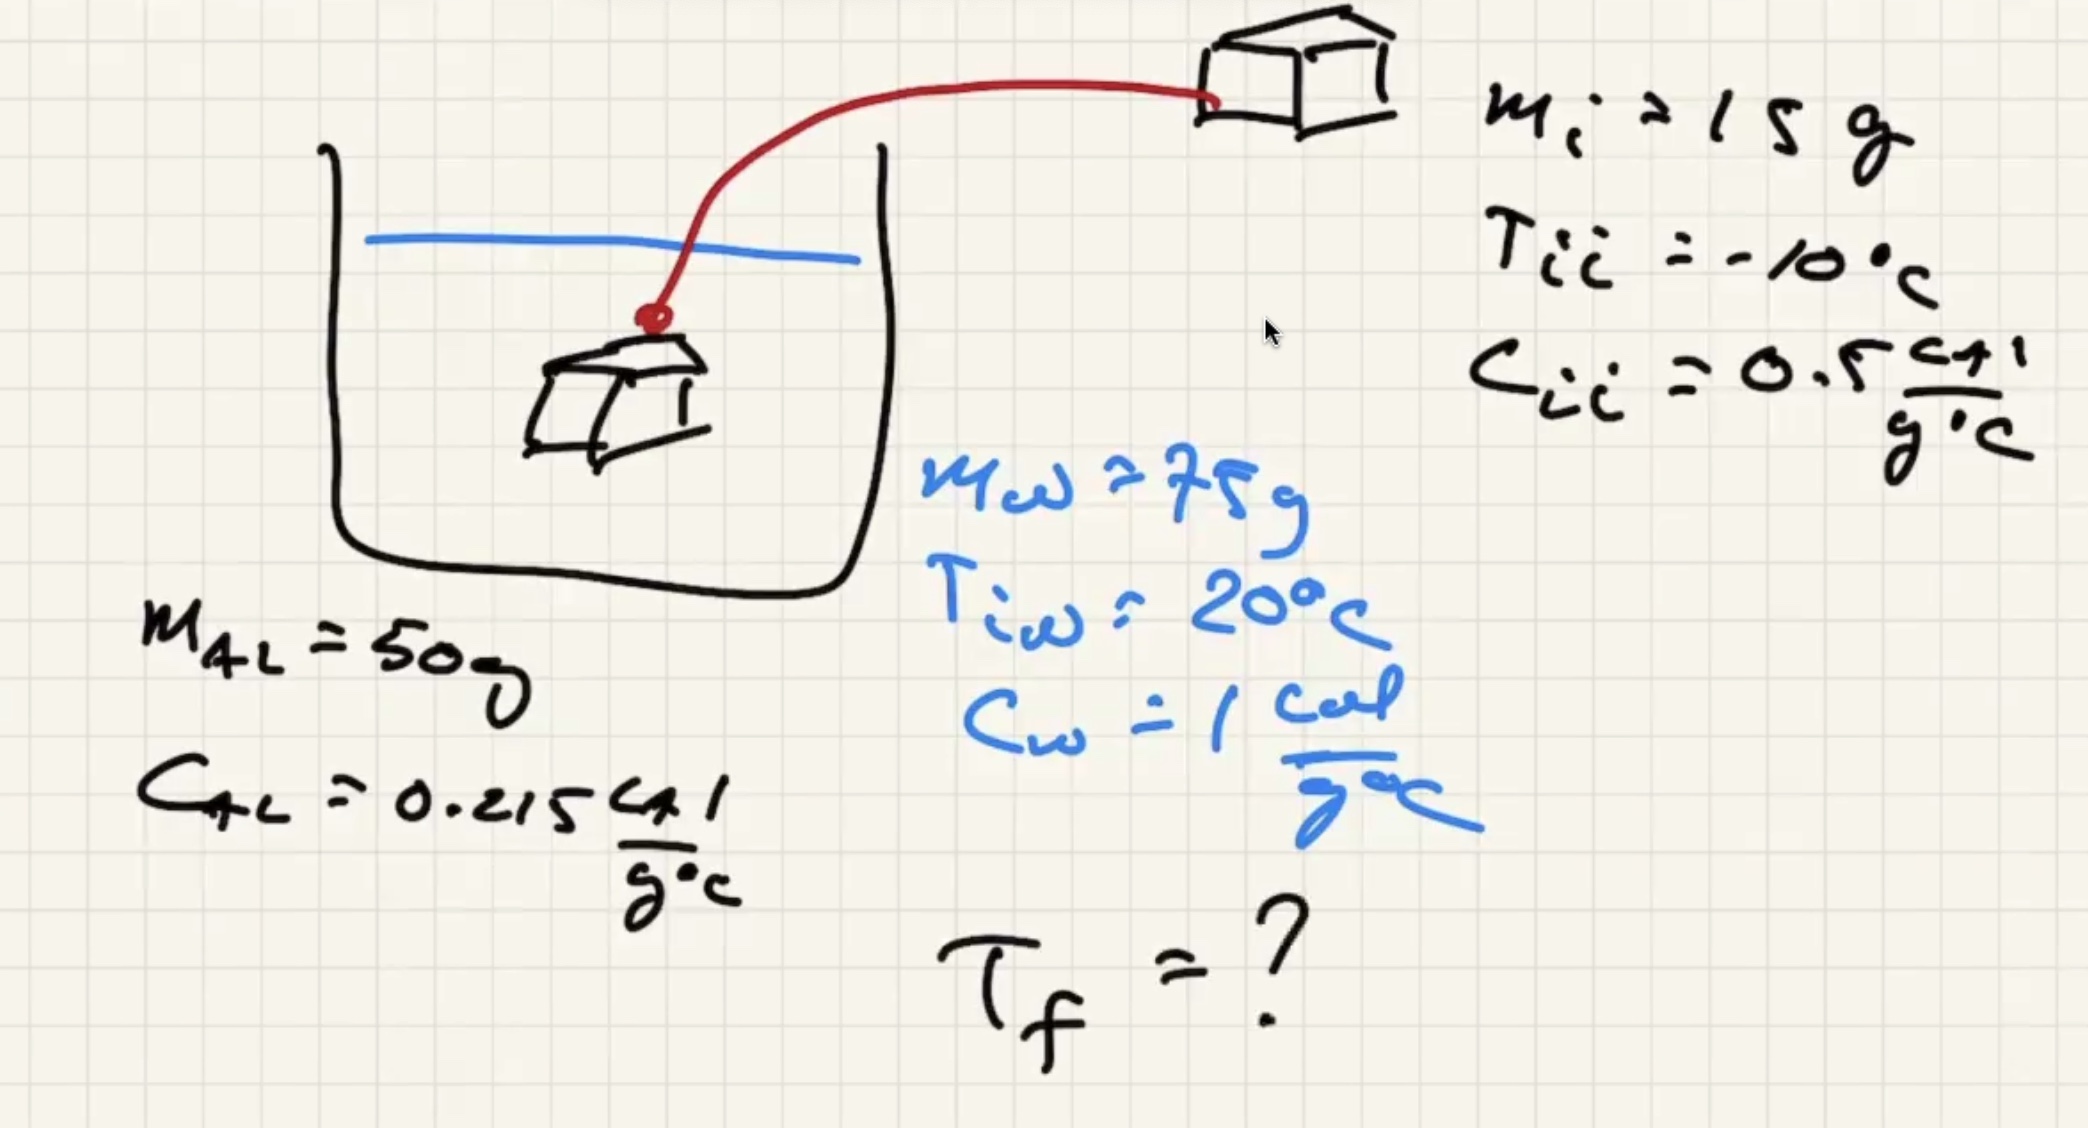 mi = 15 g
Tii = -10°C
Cii = 0.5 cal/g°C
mw = 75g
Tiw = 20°C
Cw = 1 cal/g°C
mAL = 50g
CAL = 0.215 cal/g°C
Tf = ?